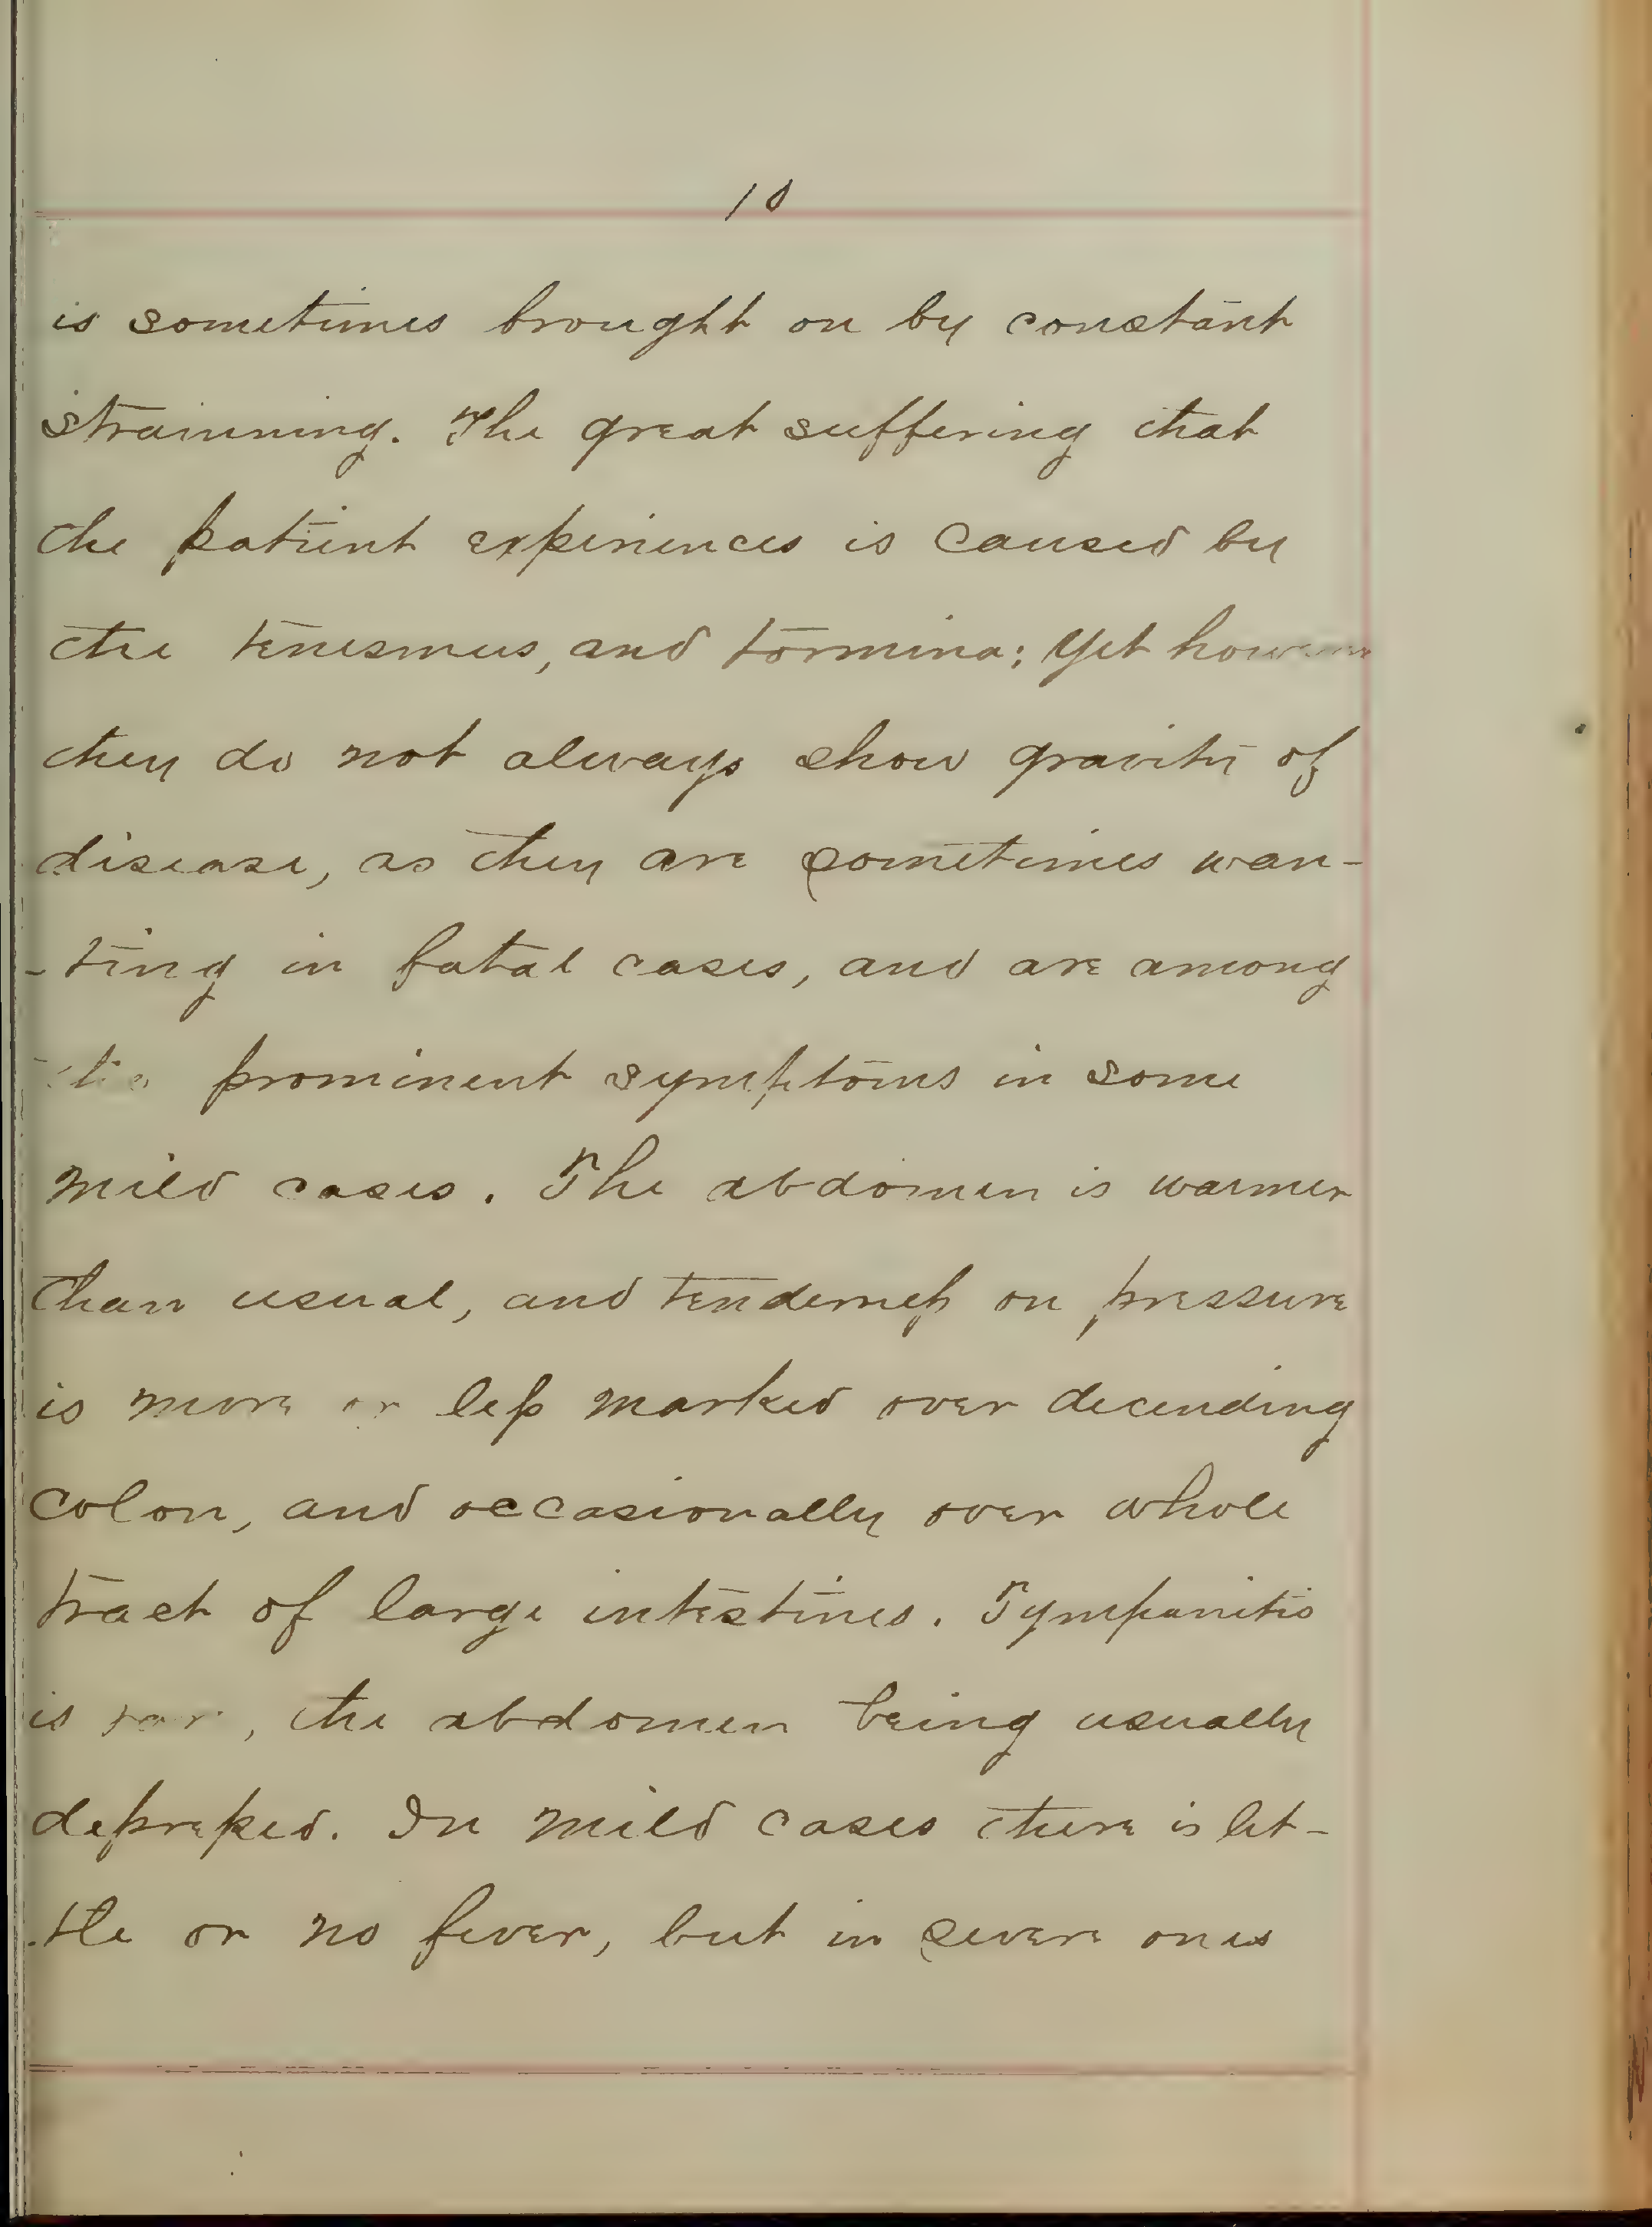 10
is sometimes brought on by constant
strainning. The great suffering that
the patient experiences is caused by
the tenesmus, and tormina; yet however
they do not always show gravity of
disease, as they are sometimes wan-
-ting in fatal cases, and are among
the prominent symptoms in some
mild cases. The abdomen is warmer
than usual, and tenderness on pressure
is more or less marked over decending
colon, and occasionally over whole
tract of large intestines. Tympanitis
is rare, the abdomen being usually
depressed. In mild cases there is lit-
-tle or no fever, but in severe ones